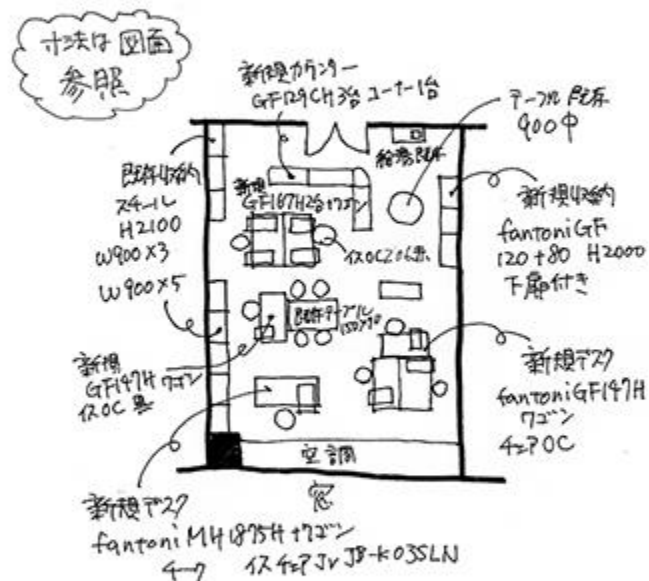 寸法は図面
参照
新規カウンター
GF129CH3台 コーナー1台
テーブル 既存
900Φ
既存収納
スチール
H2100
W900×3
W900×5
給湯既存
新規
GF167H2台+ワゴン
イスOC
新規収納
fantoniGF
120+80 H2000
下扉付き
既存テーブル
新規
GF147H ワゴン
イスOC 黒
新規デスク
fantoniGF147H
ワゴン
チェアOC
空調
窓
新規デスク
fantoni MH1875H+ワゴン
チーク イスチェアJr JB-K03SLN